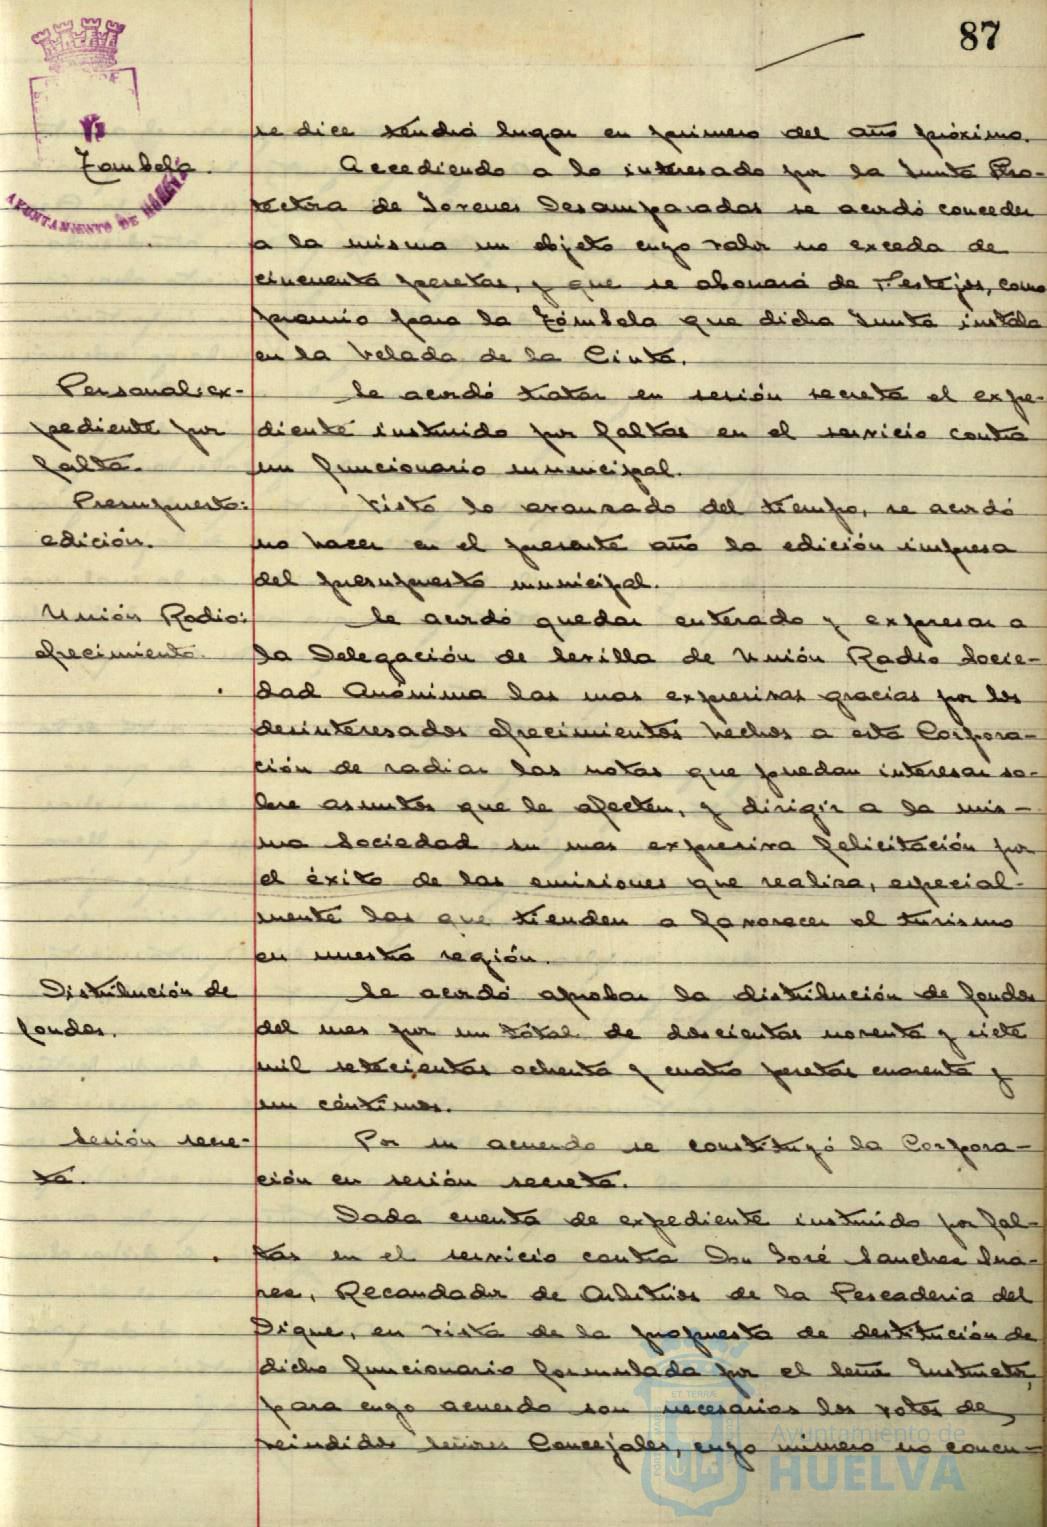 87
se dice tendrá lugar en primero del año próximo.
Tombola.
Accediendo a lo interesado por la Junta Pro-
tectora de Jovenes Desamparadas se acordó conceder
a la misma un objeto cuyo valor no exceda de
cincuenta pesetas, y que se abonará de Festejos, como
premio para la Tómbola que dicha Junta instala
en la Velada de la Cinta.
Personal: ex-
pediente por
falta.
Se acordó tratar en sesión secreta el expe-
diente instruido por faltas en el servicio contra
un funcionario municipal.
Presupuesto:
edición.
Visto lo avanzado del tiempo, se acordó
no hacer en el presente año la edición impresa
del presupuesto municipal.
Unión Radio:
ofrecimiento.
Se acordó quedar enterado y expresar a
la Delegación de Sevilla de Unión Radio Socie-
dad Anónima las mas expresivas gracias por los
desinteresados ofrecimientos hechos a esta Corpora-
ción de radiar las notas que puedan interesar so-
bre asuntos que le afecten, y dirigir a la mis-
ma Sociedad su mas expresiva felicitación por
el éxito de las emisiones que realiza, especial-
mente las que tienden a favorecer el turismo
en nuestra región.
Distribución de
fondos.
Se acordó aprobar la distribución de fondos
del mes por un total de doscientas noventa y siete
mil setecientas ochenta y cuatro pesetas cuarenta y
un céntimos.
Sesión secre-
ta.
Por su acuerdo se constituyó la Corpora-
ción en sesión secreta.
Dada cuenta de expediente instruido por fal-
tas en el servicio contra Don José Sanchez Sua-
rez, Recaudador de Arbitrios de la Pescaderia del
Dique, en vista de la propuesta de destitución de
dicho funcionario formulada por el Señor Instructor,
para cuyo acuerdo son necesarios los votos de
veindidos Señores Concejales, cuyo número no concu-
AYUNTAMIENTO DE HUELVA
Ayuntamiento de
HUELVA